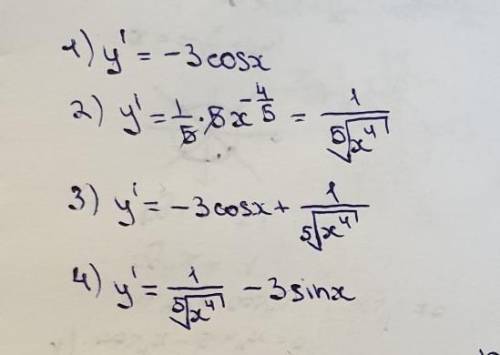 1) y' = -3cosx
2) y' = 1/5 · 5x^(-4/5) = 1/⁵√(x⁴)
3) y' = -3cosx + 1/⁵√(x⁴)
4) y' = 1/⁵√(x⁴) - 3sinx